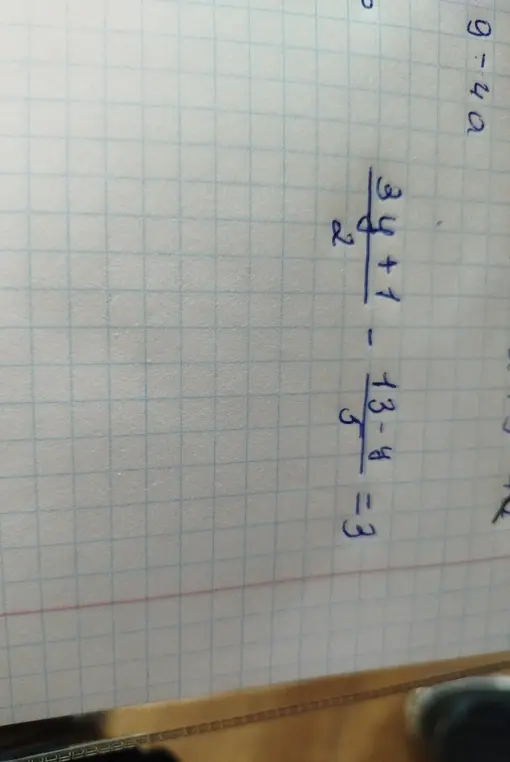 9-4a
3y+1
2
-
13-y
5
=3